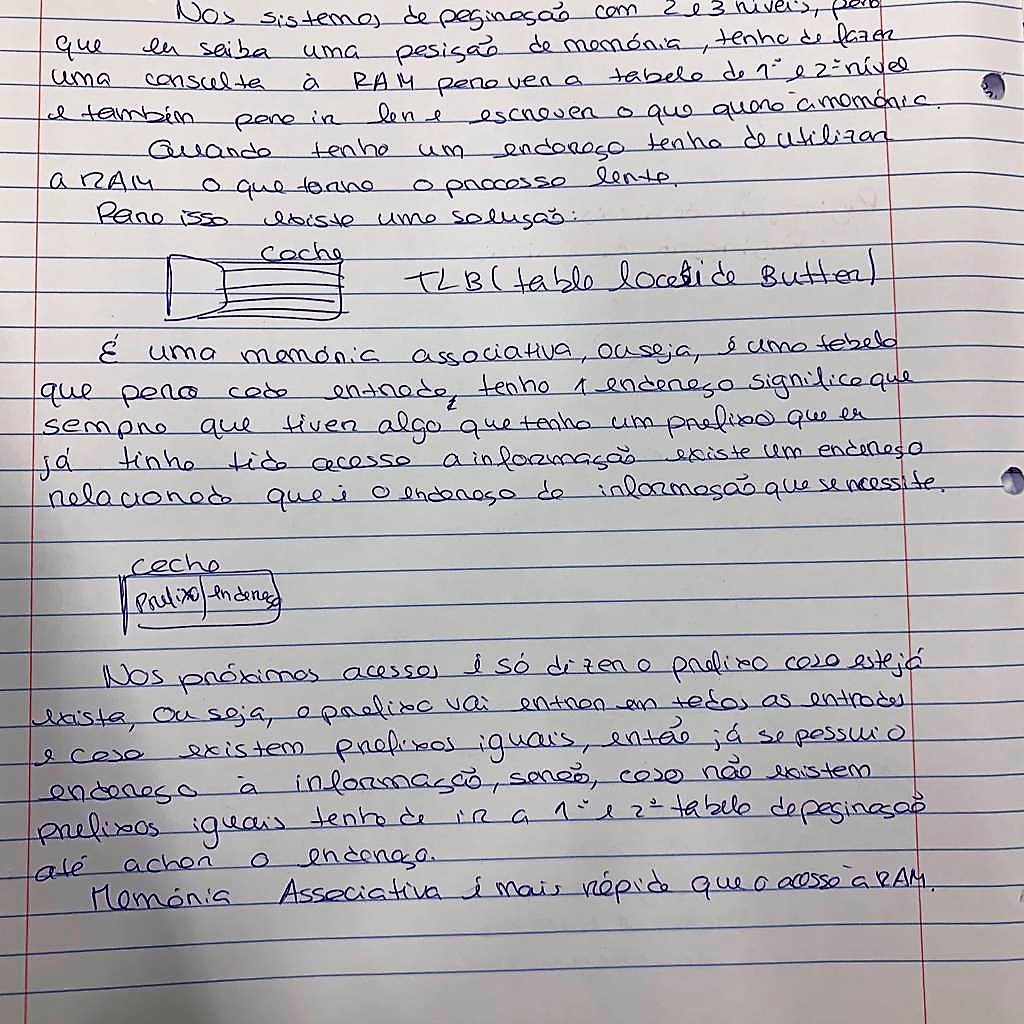 Nos sistemas de paginação com 2 e 3 níveis, para
que eu saiba uma posição de memória, tenho de fazer
uma consulta à RAM para ver a tabela de 1º e 2º nível
e também para ir ler e escrever o que quero à memória.
Quando tenho um endereço tenho de utilizar
a RAM o que torna o processo lento.
Para isso existe uma solução:
cache
TLB (table locaside Butter)
É uma memória associativa, ou seja, é uma tabela
que para cada entrada, tenho 1 endereço significa que
sempre que tiver algo que tenha um prefixo que eu
já tinha tido acesso a informação existe um endereço
relacionado que é o endereço da informação que se necessite.
cache
prefixo endereço
Nos próximos acessos é só dizer o prefixo caso este já
exista, ou seja, o prefixo vai entrar em todas as entradas
e caso existem prefixos iguais, então já se possui o
endereço à informação, senão, caso não existem
prefixos iguais tenho de ir a 1º e 2º tabela de paginação
até achar o endereço.
Memória Associativa é mais rápida que o acesso à RAM.